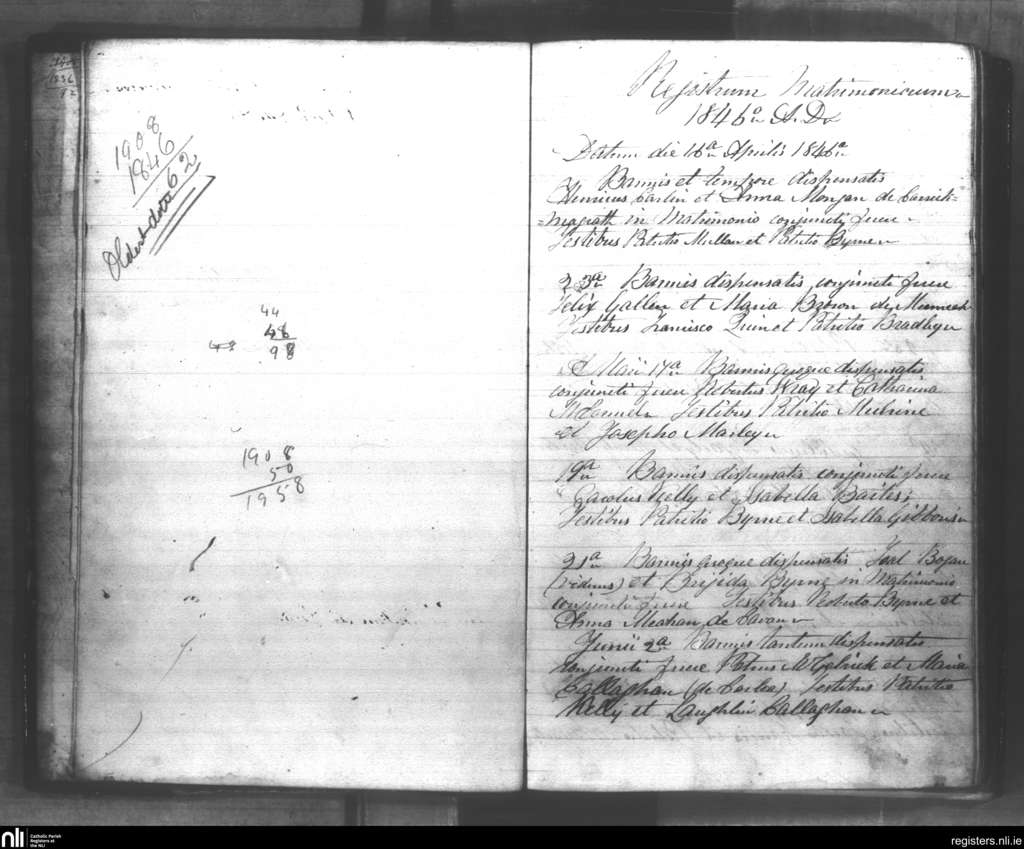 1908
1846
62
Oldest date
44
48
98
1908
50
1958
Registrum Matrimonicum
1846o A.D.
Datum die 16a Aprilis 1846a
Bannis et tempore dispensatis
Henricus Carlin et Anna Mongan de Carrick=
=magrath in Matrimonio conjuncti fuere
Testibus Patritio Mullan et Patritio Byrne
23a Bannis dispensatis, conjuncti fuere
Felix Gallen et Maria Brown de
Testibus Francisco Quin et Patritio Bradley
Maii 17a Bannis quoque dispensatis
conjuncti fuere Robertus Wray et Catharina
Testibus Patritio
et Josepho Marley
19a Bannis dispensatis conjuncti fuere
Carolus Kelly et Isabella
Testibus Patritio Byrne et Isabella Gibbonis
21a Bannis quoque dispensatis Bogan
(viduus) et Brigida Byrne in Matrimonio
conjuncti fuere Testibus Roberto Byrne et
Anna Meahan de Cavan
Junii 2a Bannis tantum dispensatis
conjuncti fuere Petrus McGolrick et Maria
Callaghan (de Corlea) Testibus Patritio
Kelly et Laughlin Callaghan
nli
Catholic Parish
Registers at
the NLI
registers.nli.ie